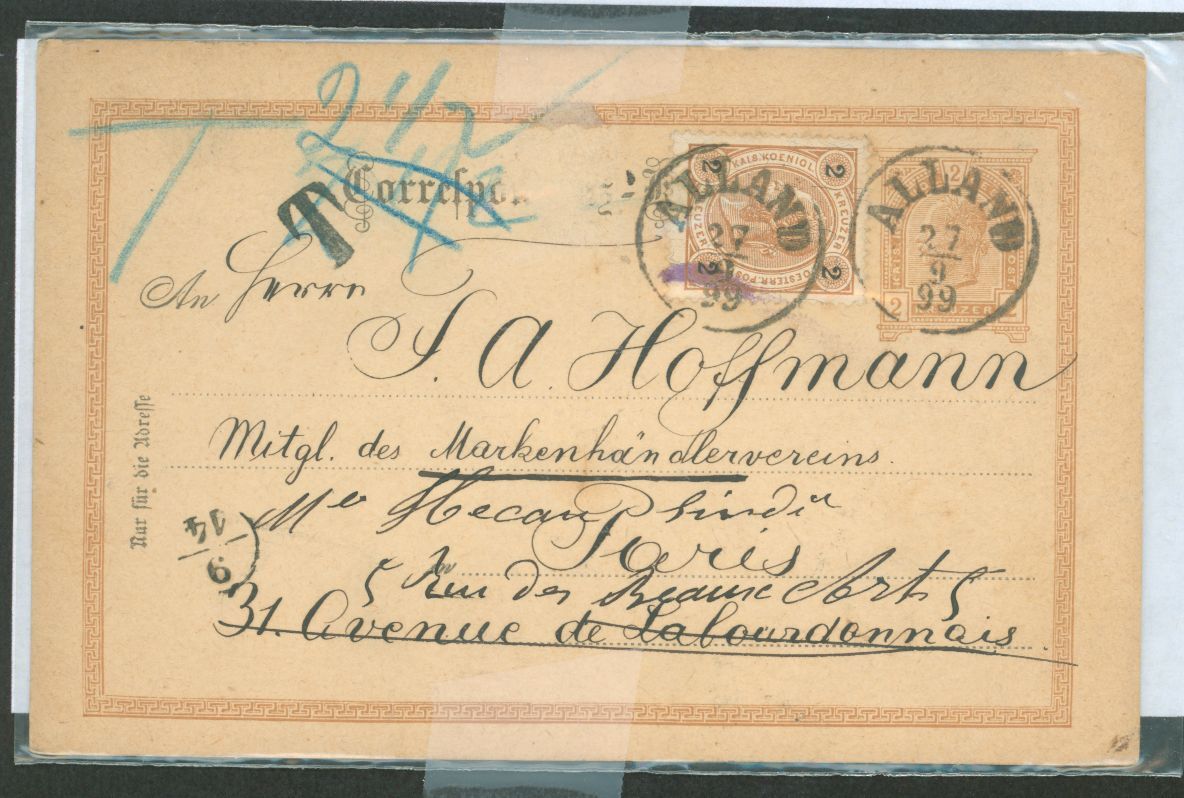 T 2 1/2
T
Correspo
An Herrn
J. A. Hoffmann
Mitgl. des Markenhändlervereins.
Paris
5 Rue des Beaux Arts 5
31. Avenue de Labourdonnais.
Nur für die Adresse
ALLAND
27
9
99
ALLAND
27
9
99
KAIS. KOENIGL.
OESTERR. POST
KREUZER
KREUZER
2
2
2
2
2
2
2
KREUZER
14
9